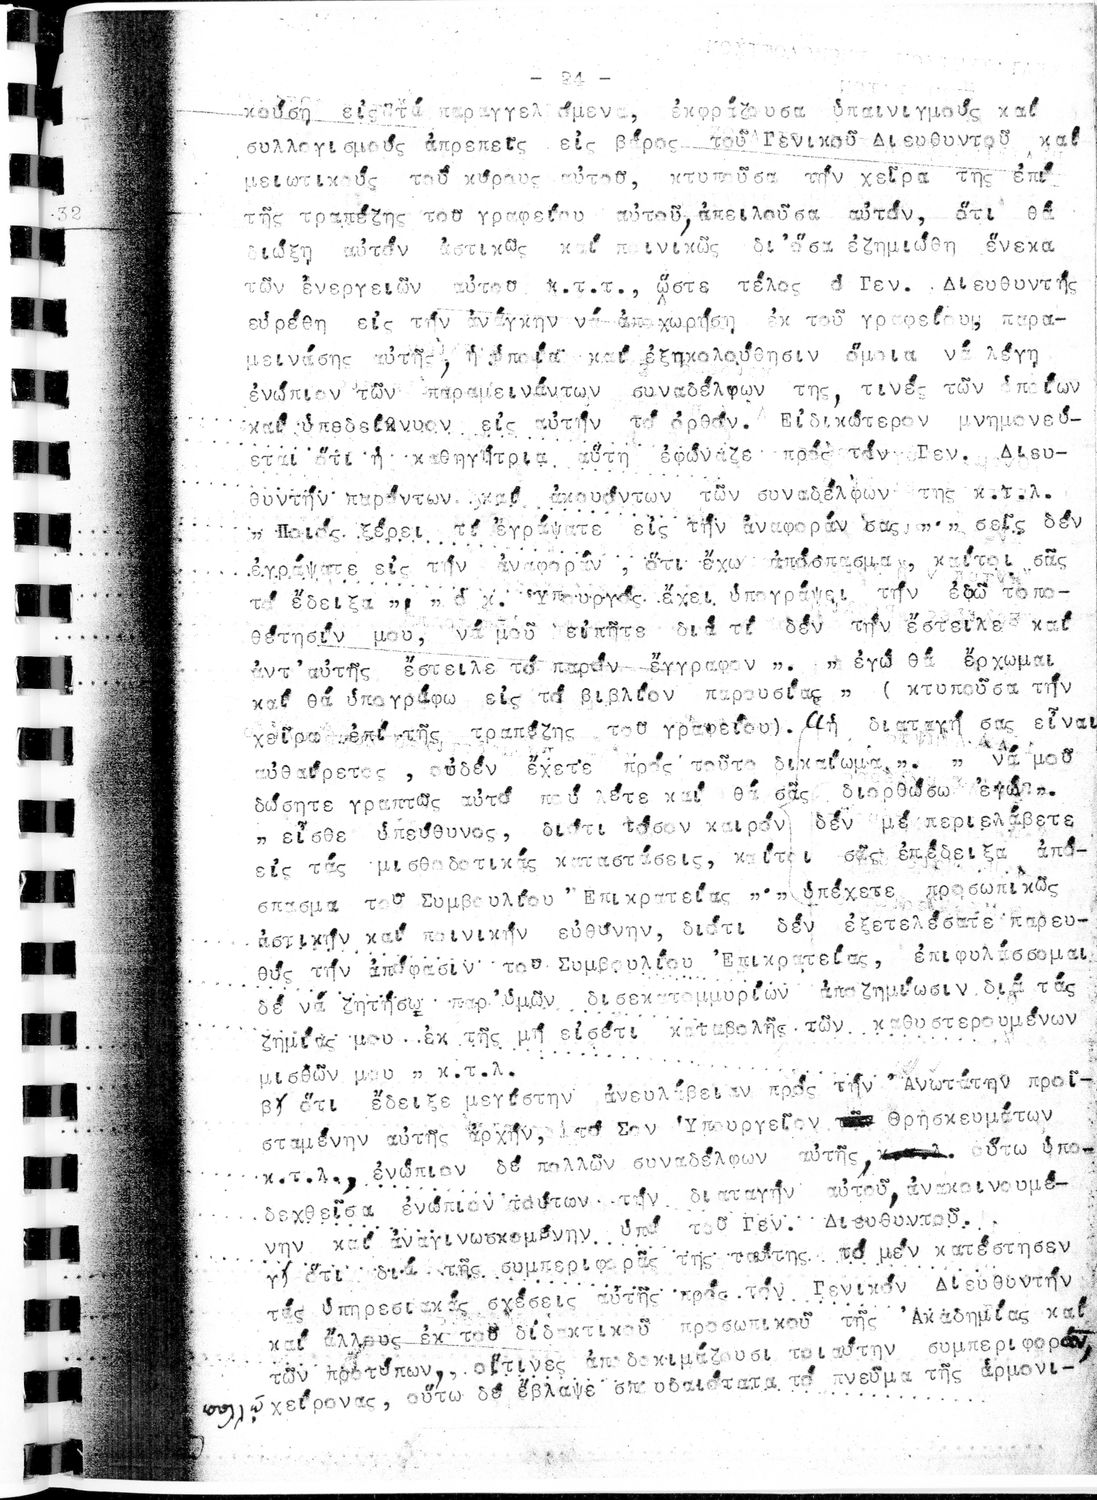 - 24 -
κούση εἰς τά παραγγελόμενα, ἐκφράζουσα ὑπαινιγμούς καί
συλλογισμούς ἀπρεπεῖς εἰς βάρος τοῦ Γενικοῦ Διευθυντοῦ καί
μειωτικούς τοῦ κύρους αὐτοῦ, κτυποῦσα τήν χεῖρα της ἐπί
32
τῆς τραπέζης τοῦ γραφείου αὐτοῦ, ἀπειλοῦσα αὐτόν, ὅτι θά
διώξη αὐτόν ἀστικῶς καί ποινικῶς δι'ὅσα ἐζημιώθη ἕνεκα
τῶν ἐνεργειῶν αὐτοῦ κ.τ.τ., ὥστε τέλος ὁ Γεν. Διευθυντής
εὑρέθη εἰς τήν ἀνάγκην νά ἀποχωρήση ἐκ τοῦ γραφείου, παρα-
μεινάσης αὐτῆς, ἡ ὁποία καί ἐξηκολούθησιν ὅμοια νά λέγη
ἐνώπιον τῶν παραμεινάντων συναδέλφων της, τινές τῶν ὁποίων
καί ὑπεδείκνυον εἰς αὐτήν τό ὀρθόν. Εἰδικώτερον μνημονεύ-
εται ὅτι ἡ καθηγήτρια αὕτη ἐφώναζε πρός τόν Γεν. Διευ-
θυντήν παρόντων καί ἀκουόντων τῶν συναδέλφων της κ.τ.λ.
" Ποιός ξέρει τί ἐγράψατε εἰς τήν ἀναφοράν σας " " σεῖς δέν
ἐγράψατε εἰς τήν ἀναφοράν, ὅτι ἔχω ἀπόσπασμα, καίτοι σᾶς
τό ἔδειξα ", " ὁ χ. Ὑπουργός ἔχει ὑπογράψει τήν ἐδῶ τοπο-
θέτησίν μου, νά μοῦ εἰπῆτε διά τί δέν τήν ἔστειλε καί
ἀντ'αὐτῆς ἔστειλε τό παρόν ἔγγραφον ". " ἐγώ θά ἔρχωμαι
καί θά ὑπογράφω εἰς τό βιβλίον παρουσίας " ( κτυποῦσα τήν
χεῖρα ἐπί τῆς τραπέζης τοῦ γραφείου). "ἡ διαταγή σας εἶναι
αὐθαίρετος, οὐδέν ἔχετε πρός τοῦτο δικαίωμα ". " νά μοῦ
δώσητε γραπτῶς αὐτό πού λέτε καί θά σᾶς διορθώσω ἐγώ ".
" εἶσθε ὑπεύθυνος, διότι τόσον καιρόν δέν μέ περιελάβετε
εἰς τάς μισθοδοτικάς καταστάσεις, καίτοι σᾶς ἐπέδειξα ἀπό-
σπασμα τοῦ Συμβουλίου Ἐπικρατείας " " ὑπέχετε προσωπικῶς
ἀστικήν καί ποινικήν εὐθύνην, διότι δέν ἐξετελέσατε παρευ-
θύς τήν ἀπόφασιν τοῦ Συμβουλίου Ἐπικρατείας, ἐπιφυλάσσομαι
δέ νά ζητήσω παρ'ὑμῶν δισεκατομμυρίων ἀποζημίωσιν διά τάς
ζημίας μου ἐκ τῆς μή εἰσέτι καταβολῆς τῶν καθυστερουμένων
μισθῶν μου " κ.τ.λ.
β) ὅτι ἔδειξε μεγίστην ἀνευλάβειαν πρός τήν Ἀνωτάτην προϊ-
σταμένην αὐτῆς ἀρχήν, τό Σον Ὑπουργεῖον Θρησκευμάτων
κ.τ.λ., ἐνώπιον δέ πολλῶν συναδέλφων αὐτῆς, οὕτω ὑπο-
δεχθεῖσα ἐνώπιον τούτων τήν διαταγήν αὐτοῦ, ἀνακοινουμέ-
νην καί ἀναγινωσκομένην ὑπό τοῦ Γεν. Διευθυντοῦ.
γ) ὅτι διά τῆς συμπεριφορᾶς της ταύτης τό μέν κατέστησεν
τάς ὑπηρεσιακάς σχέσεις αὐτῆς πρός τόν Γενικόν Διευθυντήν
καί ἄλλους ἐκ τοῦ διδακτικοῦ προσωπικοῦ τῆς Ἀκαδημίας καί
τῶν προτύπων, οἵτινες ἀποδοκιμάζουσι τοιαύτην συμπεριφοράν,
χείρονας, οὕτω δέ ἔβλαψε σπουδαιότατα τό πνεῦμα τῆς ἁρμονι-